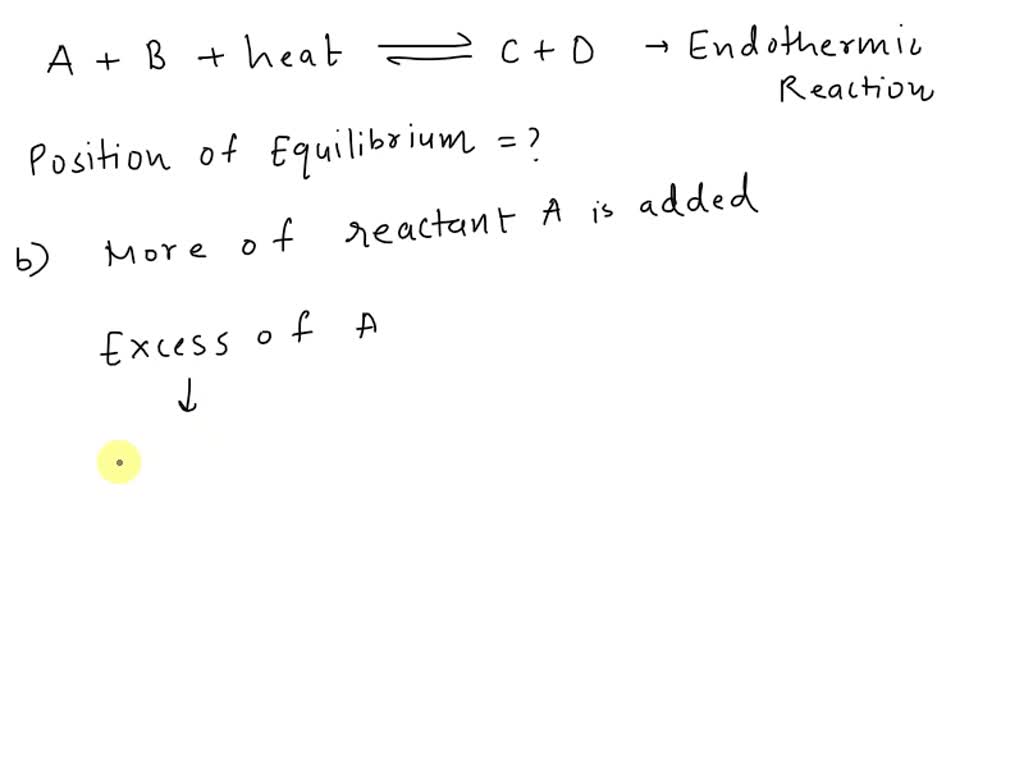 A + B + heat ⇌ C + D → Endothermic
Reaction
Position of Equilibrium = ?
b) More of reactant A is added
Excess of A
↓